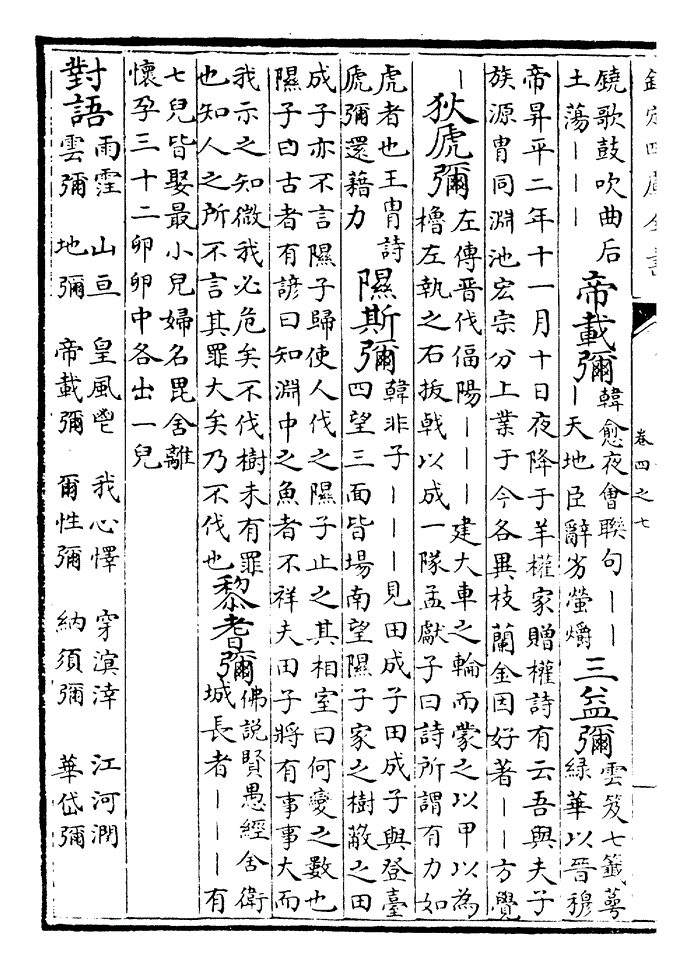 欽定四庫全書
卷四之七
鐃歌鼓吹曲后
土蕩｜｜｜
帝載彌
韓愈夜會聯句｜｜
｜天地臣辭劣螢爝
三益彌
雲笈七籤萼
綠華以晉穆
帝昇平二年十一月十日夜降于羊權家贈權詩有云吾與夫子
族源胄同淵池宏宗分上業于今各異枝蘭金因好著｜｜方覺
｜
狄虒彌
左傳晉伐偪陽｜｜｜建大車之輪而蒙之以甲以為
櫓左執之石拔戟以成一隊孟獻子曰詩所謂有力如
虎者也王胄詩
虒彌還藉力
隰斯彌
韓非子｜｜｜見田成子田成子與登臺
四望三面皆場南望隰子家之樹蔽之田
成子亦不言隰子歸使人伐之隰子止之其相室曰何變之數也
隰子曰古者有諺曰知淵中之魚者不祥夫田子將有事事大而
我示之知微我必危矣不伐樹未有罪
也知人之所不言其罪大矣乃不伐也
黎耆彌
佛說賢愚經舍衛
城長者｜｜｜有
七兒皆娶最小兒婦名毘舍離
懷孕三十二卵卵中各出一兒
對語
雨霔 山亘 皇風鬯 我心懌 穿溟涬 江河潤
雲彌 地彌 帝載彌 爾性彌 納須彌 華岱彌